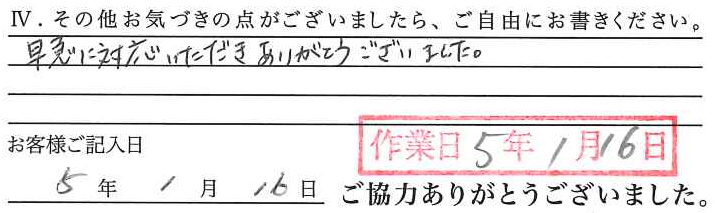 Ⅳ．その他お気づきの点がございましたら、ご自由にお書きください。
早急に対応いただきありがとうございました。
お客様ご記入日
作業日 5年 1月16日
5 年 1 月 16 日
ご協力ありがとうございました。